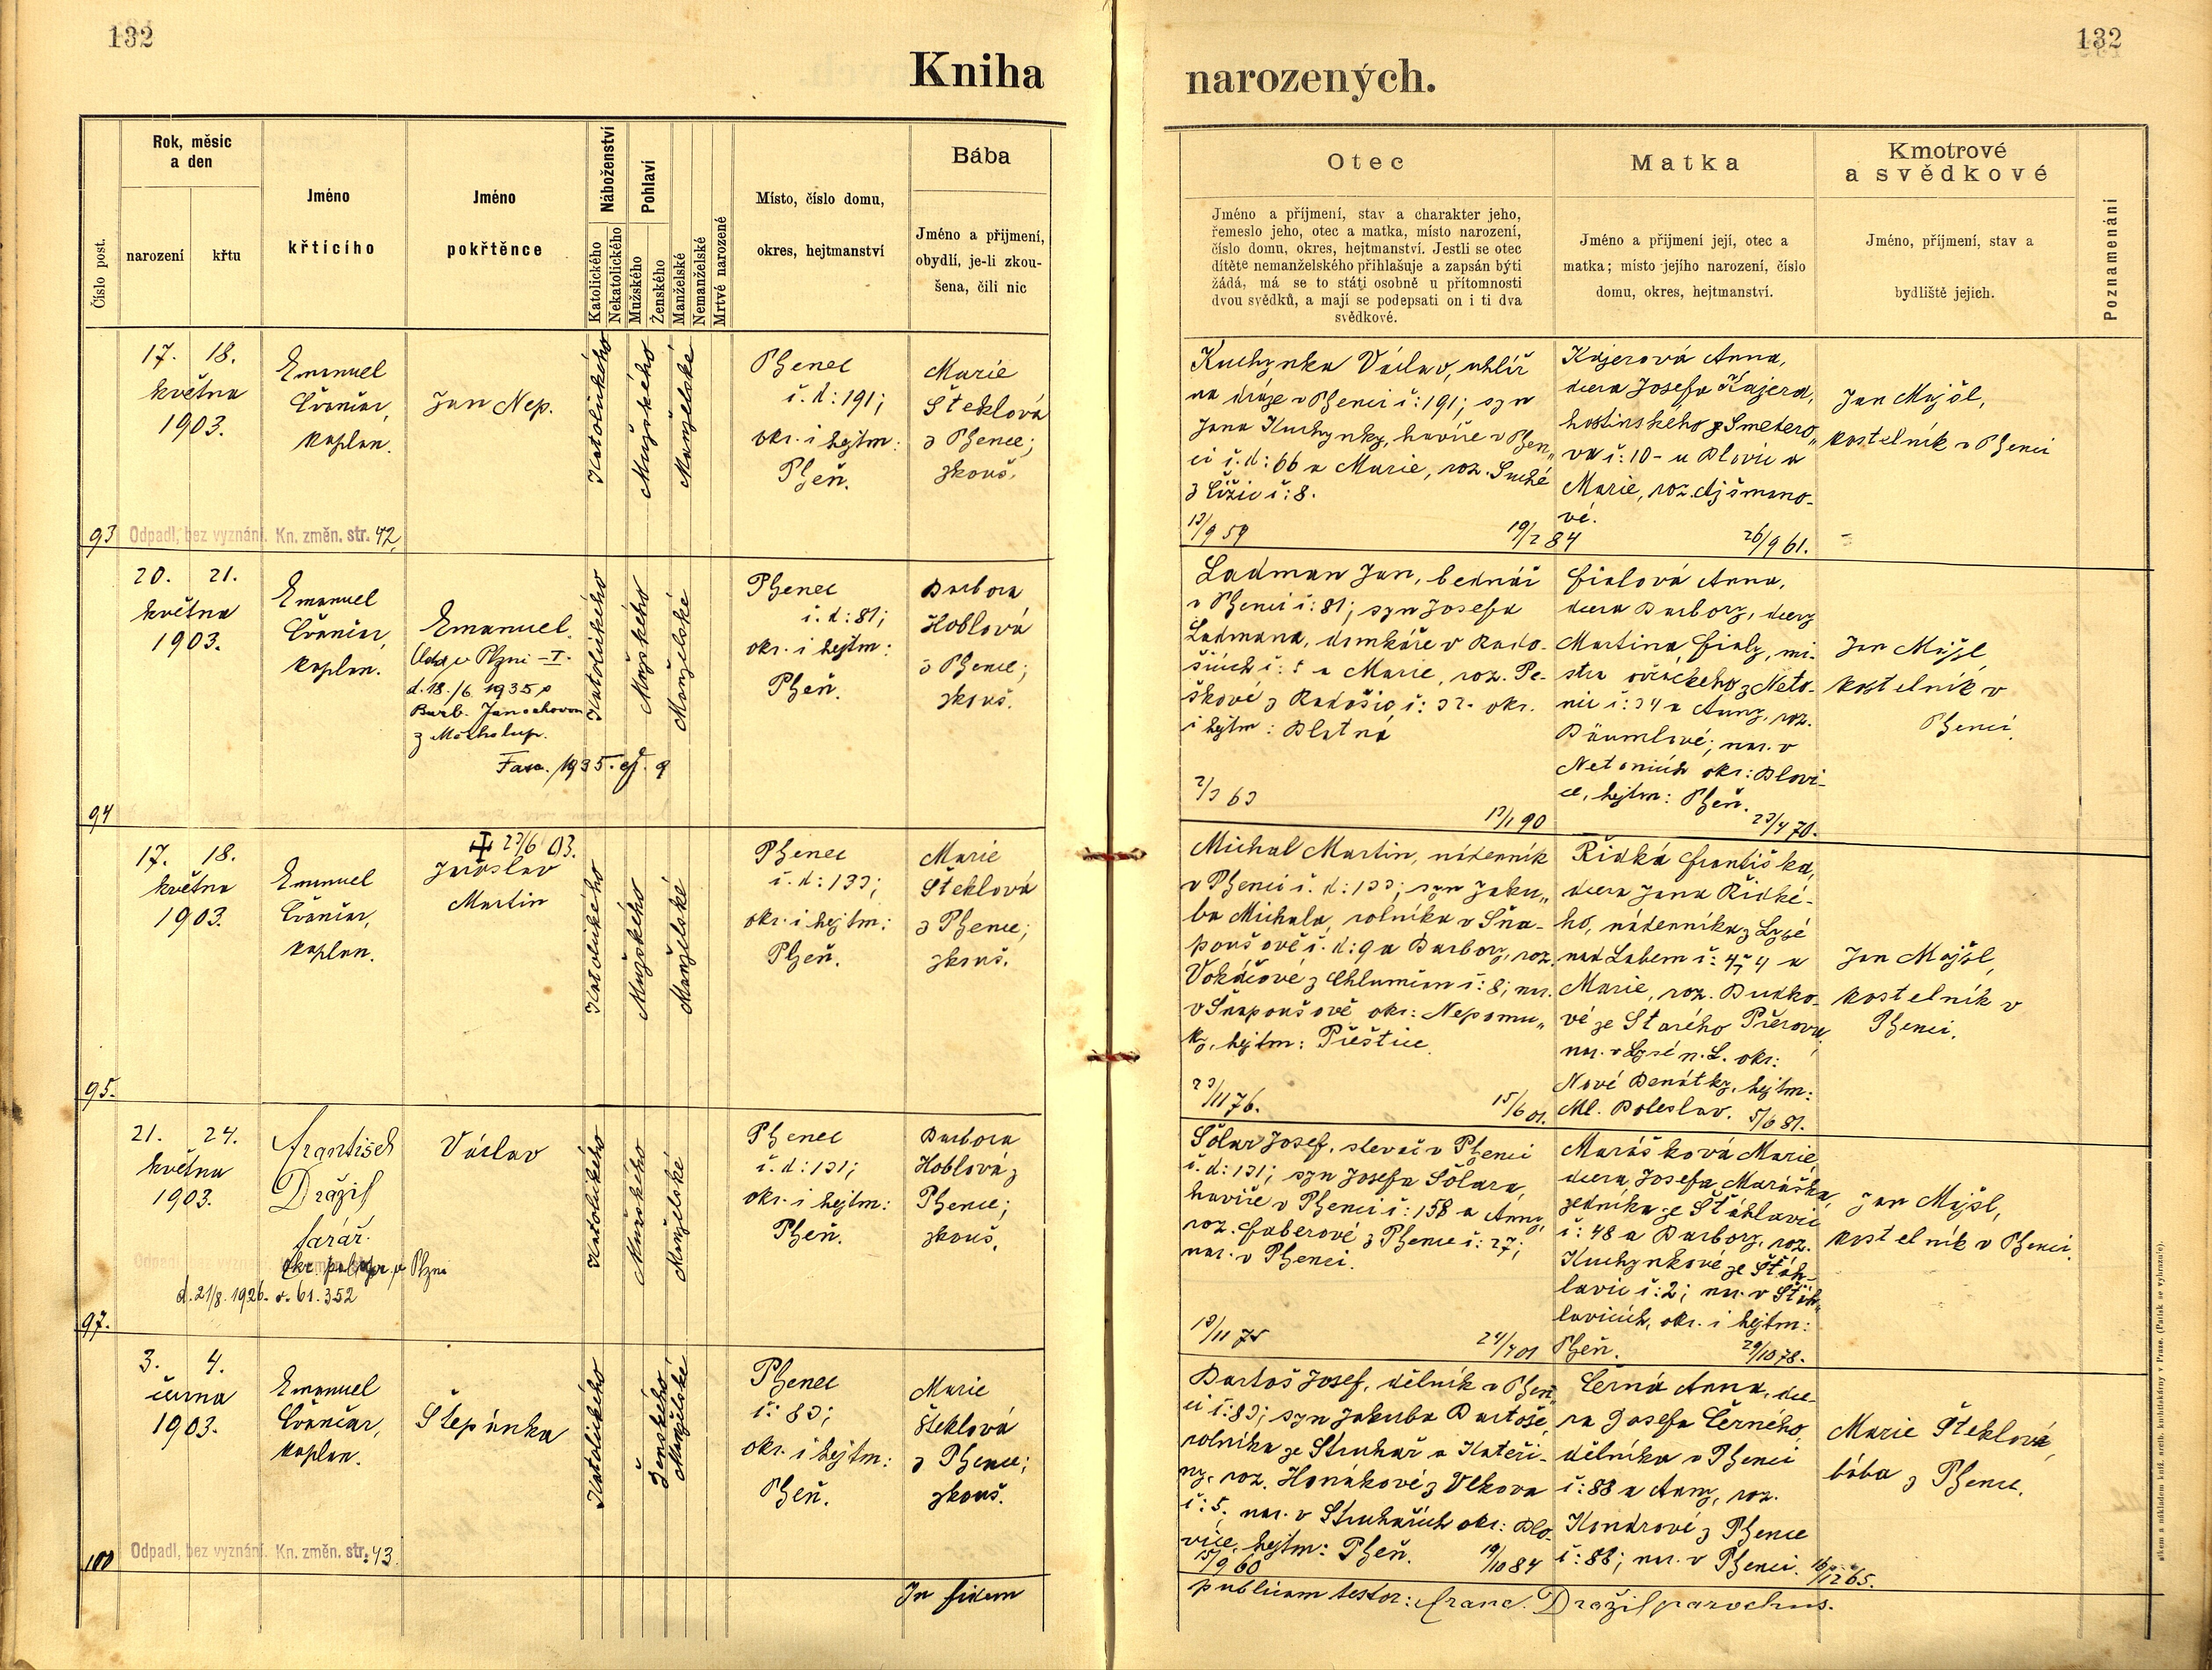 132
132
Kniha
narozených.
Číslo post.
Rok, měsíc
a den
narození
křtu
Jméno
křtícího
Jméno
pokřtěnce
Náboženství
Katolického
Nekatolického
Pohlaví
Mužského
Ženského
Manželské
Nemanželské
Mrtvě narozené
Místo, číslo domu,
okres, hejtmanství
Bába
Jméno a přijmení,
obydlí, je-li zkou-
šena, čili nic
Otec
Jméno a příjmení, stav a charakter jeho,
řemeslo jeho, otec a matka, místo narození,
číslo domu, okres, hejtmanství. Jestli se otec
dítěte nemanželského přihlašuje a zapsán býti
žádá, má se to státi osobně u přítomnosti
dvou svědků, a mají se podepsati on i ti dva
svědkové.
Matka
Jméno a přijmení její, otec a
matka; místo jejího narození, číslo
domu, okres, hejtmanství.
Kmotrové
a svědkové
Jméno, příjmení, stav a
bydliště jejich.
Poznamenání
93
17. 18.
května
1903.
Emanuel
kaplan.
Jan Nep.
Katolického
Mužského
Manželské
Plzenec
č. d: 191;
okr. i hejtm:
Plzeň.
Marie
Šteklová
z Plzence;
zkouš.
Kuchynka Václav, uhlíř
na dráze v Plzenci č: 191; syn
Jana Kuchynky, havíře v Plzen„
ci č. d: 66 a Marie, roz. Suché
z Čížic č: 8.
13/9 59
19/2 84
Kajerová Anna,
dcera Josefa Kajera,
hostinského z Smědero„
va č: 10 - u Blovic a
Marie, roz. Ajšmano-
vé.
26/9 61.
Jan Majšl,
kostelník v Plzenci
Odpadl, bez vyznání. Kn. změn. str. 42.
94
20. 21.
května
1903.
Emanuel
kaplan.
Emanuel.
Odd. v Plzni - I.
d. 18./6 1935 s
Barb. Janochovou
z Mecholup.
Fasc. 1935. čj. 9
Katolického
Mužského
Manželské
Plzenec
č. d: 81;
okr. i hejtm:
Plzeň.
Barbora
Hoblová
z Plzence;
zkouš.
Ladman Jan, bednář
v Plzenci č: 81; syn Josefa
Ladmana, domkáře v Rado-
šicích č: 5 a Marie, roz. Pe-
škové z Radošic č: 32. okr.
i hejtm: Blatná
2/3 63
13/1 90
Fialová Anna,
dcera Barbory, dcery
Martina Fialy, mi-
stra ovčáckého z Neto-
nic č: 34 a Anny, roz.
Bäumlové; nar. v
Netonicích okr: Blovi-
ce, hejtm: Plzeň.
23/4 70.
Jan Majšl
kostelník v
Plzenci.
95.
17. 18.
května
1903.
Emanuel
kaplan.
† 23/6 03.
Jaroslav
Martin
Katolického
Mužského
Manželské
Plzenec
č. d: 133;
okr. i hejtm:
Plzeň.
Marie
Šteklová
z Plzence;
zkouš.
Michal Martin, nádenník
v Plzenci č. d: 133; syn Jaku„
ba Michala, rolníka v Sňa-
poušově č. d: 9 a Barbory, roz.
Vokáčové z Chlumčan č: 8; nar.
v Sňapoušově okr: Nepomu„
ky, hejtm: Přeštice
23/11 76.
15/6 01.
Řidká Františka,
dcera Jana Řidké-
ho, nádenníka z Lysé
nad Labem č: 454 a
Marie, roz. Dudko-
vé ze Starého Přerova,
nar. v Lysé n. L. okr:
Nové Benátky, hejtm:
Ml. Boleslav. 5/6 81.
Jan Majšl,
kostelník v
Plzenci.
97.
21. 24.
května
1903.
František
Dražil
farář.
Václav
Katolického
Mužského
Manželské
Plzenec
č. d: 131;
okr. i hejtm:
Plzeň.
Barbora
Hoblová z
Plzence;
zkouš.
Šolar Josef, slevač v Plzenci
č. d: 131; syn Josefa Šolara,
havíře v Plzenci č: 158 a Anny,
roz. Faberové z Plzence č: 27;
nar. v Plzenci.
13/11 75
24/7 01
Marášková Marie,
dcera Josefa Maráška,
zedníka ze Štáhlavic
č: 48 a Barbory, roz.
Kuchynkové ze Štáh-
lavic č: 2; nar. v Štáh-
lavicích, okr. i hejtm:
Plzeň. 29/10 78.
Jan Majšl,
kostelník v Plzenci.
okr. pol. spr. v Plzni
d. 21/8. 1926. č. 61.352
100
3. 4.
června
1903.
Emanuel
kaplan.
Štěpánka
Katolického
Ženského
Manželské
Plzenec
č: 83;
okr. i hejtm:
Plzeň.
Marie
Šteklová
z Plzence;
zkouš.
Bartoš Josef, dělník v Plzen„
ci č: 83; syn Jakuba Bartoše,
rolníka ze Struhař a Kateři-
ny, roz. Honákové z Vlkova
č: 5, nar. v Struhařích okr: Blo-
vice, hejtm: Plzeň.
15/9 60
19/10 84
Černá Anna, dce-
ra Josefa Černého,
dělníka v Plzenci
č: 88 a Anny, roz.
Kondrové z Plzence
č: 88; nar. v Plzenci. 16/12 65.
Marie Šteklová,
bába z Plzence.
Odpadl, bez vyznání. Kn. změn. str. 43.
In fidem
publicam testor: Franc. Dražil parochus.